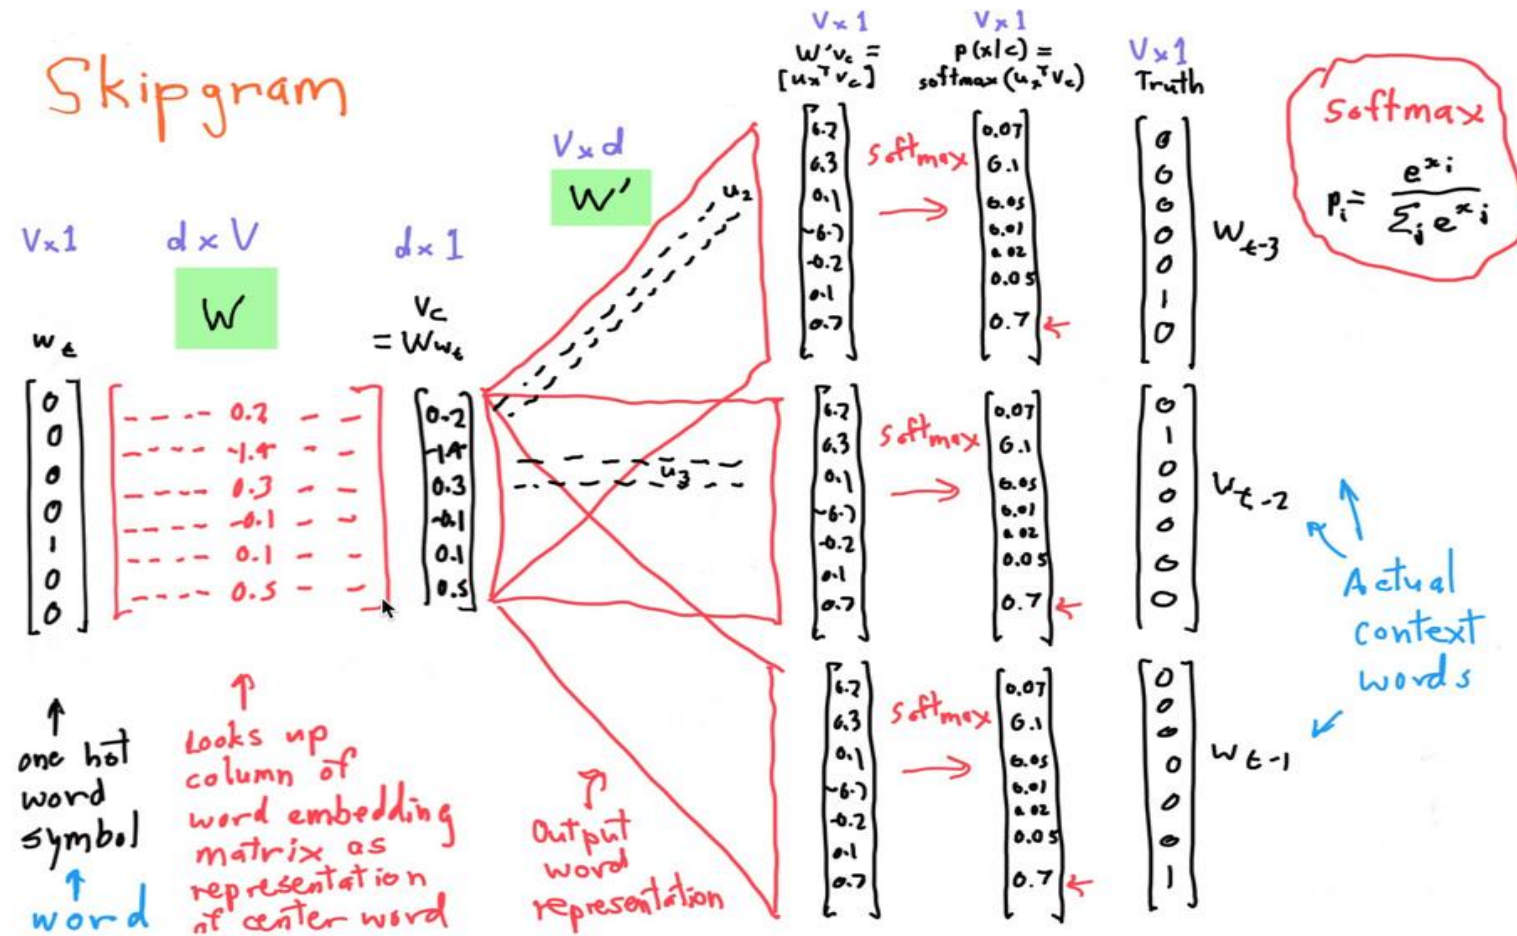 Skipgram
V×1
d×V
W
d×1
V×d
W'
w_t
v_c
= Ww_t
0
0
0
0
1
0
0
0.2
-1.4
0.3
-0.1
0.1
0.5
0.2
-1.4
0.3
-0.1
0.1
0.5
u_2
u_3
V×1
W'v_c =
[u_x^T v_c]
V×1
p(x|c) =
softmax(u_x^T v_c)
V×1
Truth
6.7
6.3
0.1
-6.7
-0.2
0.1
0.7
softmax
0.07
0.1
0.05
0.01
0.02
0.05
0.7
0
0
0
0
0
1
0
w_t-3
6.7
6.3
0.1
-6.7
-0.2
0.1
0.7
softmax
0.07
0.1
0.05
0.01
0.02
0.05
0.7
0
1
0
0
0
0
0
w_t-2
6.7
6.3
0.1
-6.7
-0.2
0.1
0.7
softmax
0.07
0.1
0.05
0.01
0.02
0.05
0.7
0
0
0
0
0
0
1
w_t-1
softmax
p_i = e^x_i / Σ_j e^x_j
Actual
context
words
one hot
word
symbol
word
Looks up
column of
word embedding
matrix as
representation
of center word
Output
word
representation